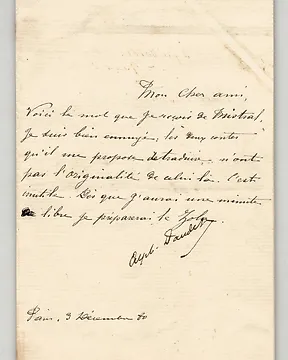 Mon cher ami,
Voici le mot que je reçois de Mistral.
Je suis bien ennuyé, les deux contes
qu'il me propose de traduire, n'ont
pas l'originalité de celui là. C'est
inutile. Dès que j'aurai une minute
de libre je préparerai le Zola.
Alph. Daudet
Paris, 3 Décembre 80